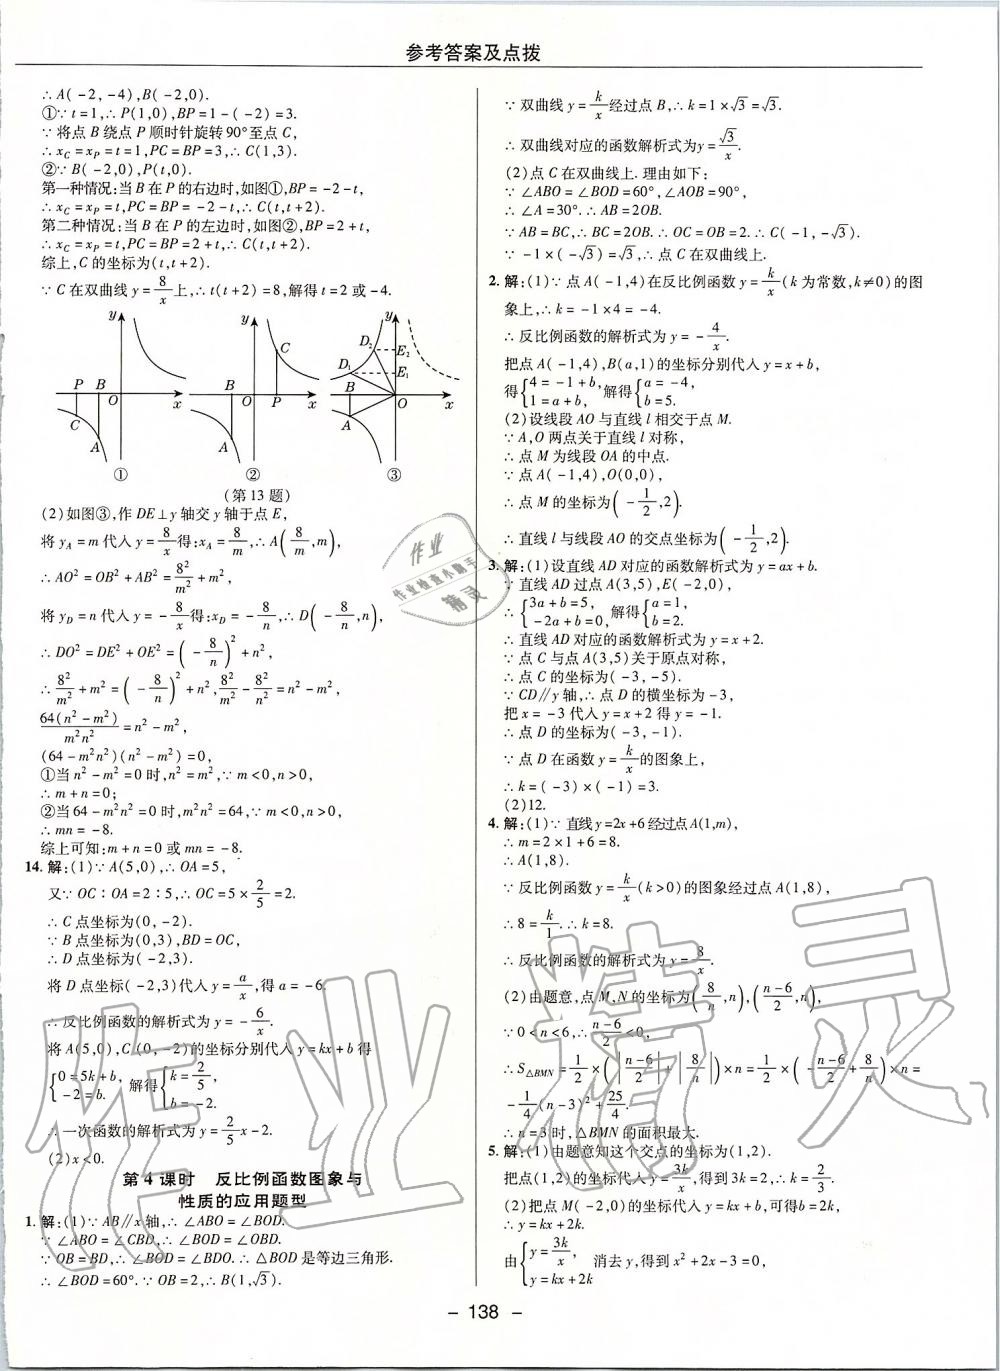 参考答案及点拨
∴A(-2,-4),B(-2,0).
①∵t=1,∴P(1,0),BP=1-(-2)=3.
∵将点B绕点P顺时针旋转90°至点C,
∴x_C=x_P=t=1,PC=BP=3,∴C(1,3).
②∵B(-2,0),P(t,0).
第一种情况:当B在P的右边时,如图①,BP=-2-t,
∴x_C=x_P=t,PC=BP=-2-t,∴C(t,t+2).
第二种情况:当B在P的左边时,如图②,BP=2+t,
∴x_C=x_P=t,PC=BP=2+t,∴C(t,t+2).
综上,C的坐标为(t,t+2).
∵C在双曲线y=8/x上,∴t(t+2)=8,解得t=2或-4.
y P B O x C A ①
y C B O P x A ②
y D₂ E₂ D₁ E₁ B O x A ③
(第13题)
(2)如图③,作DE⊥y轴交y轴于点E,
将y_A=m代入y=8/x得:x_A=8/m,∴A(8/m,m),
∴AO²=OB²+AB²=8²/m²+m²,
将y_D=n代入y=-8/x得:x_D=-8/n,∴D(-8/n,n),
∴DO²=DE²+OE²=(-8/n)²+n²,
∴8²/m²+m²=(-8/n)²+n²,8²/m²-8²/n²=n²-m²,
64(n²-m²)/m²n²=n²-m²,
(64-m²n²)(n²-m²)=0,
①当n²-m²=0时,n²=m²,∵m<0,n>0,
∴m+n=0;
②当64-m²n²=0时,m²n²=64,∵m<0,n>0,
∴mn=-8.
综上可知:m+n=0或mn=-8.
14.解:(1)∵A(5,0),∴OA=5,
又∵OC∶OA=2∶5,∴OC=5×2/5=2.
∴C点坐标为(0,-2).
∵B点坐标为(0,3),BD=OC,
∴D点坐标为(-2,3).
将D点坐标(-2,3)代入y=a/x,得a=-6.
∴反比例函数的解析式为y=-6/x.
将A(5,0),C(0,-2)的坐标分别代入y=kx+b得
{0=5k+b, -2=b. 解得{k=2/5, b=-2.
∴一次函数的解析式为y=2/5x-2.
(2)x<0.
第4课时 反比例函数图象与
性质的应用题型
1.解:(1)∵AB∥x轴,∴∠ABO=∠BOD.
∵∠ABO=∠CBD,∴∠BOD=∠OBD.
∵OB=BD,∴∠BOD=∠BDO.∴△BOD是等边三角形.
∴∠BOD=60°.∵OB=2,∴B(1,√3).
∵双曲线y=k/x经过点B,∴k=1×√3=√3.
∴双曲线对应的函数解析式为y=√3/x.
(2)点C在双曲线上.理由如下:
∵∠ABO=∠BOD=60°,∠AOB=90°,
∴∠A=30°.∴AB=2OB.
∵AB=BC,∴BC=2OB.∴OC=OB=2.∴C(-1,-√3).
∵-1×(-√3)=√3,∴点C在双曲线上.
2.解:(1)∵点A(-1,4)在反比例函数y=k/x(k为常数,k≠0)的图
象上,∴k=-1×4=-4.
∴反比例函数的解析式为y=-4/x.
把点A(-1,4),B(a,1)的坐标分别代入y=x+b,
得{4=-1+b, 1=a+b, 解得{a=-4, b=5.
(2)设线段AO与直线l相交于点M.
∵A,O两点关于直线l对称,
∴点M为线段OA的中点.
∵点A(-1,4),O(0,0)
∴点M的坐标为(-1/2,2).
∴直线l与线段AO的交点坐标为(-1/2,2).
3.解:(1)设直线AD对应的函数解析式为y=ax+b.
∵直线AD过点A(3,5),E(-2,0),
∴{3a+b=5, -2a+b=0, 解得{a=1, b=2.
∴直线AD对应的函数解析式为y=x+2.
∵点C与点A(3,5)关于原点对称,
∴点C的坐标为(-3,-5).
∵CD∥y轴,∴点D的横坐标为-3,
把x=-3代入y=x+2得y=-1.
∴点D的坐标为(-3,-1).
∵点D在函数y=k/x的图象上,
∴k=(-3)×(-1)=3.
(2)12.
4.解:(1)∵直线y=2x+6经过点A(1,m),
∴m=2×1+6=8.
∴A(1,8).
∵反比例函数y=k/x(k>0)的图象经过点A(1,8),
∴8=k/1.∴k=8.
∴反比例函数的解析式为y=8/x.
(2)由题意,点M,N的坐标为(8/n,n),((n-6)/2,n),
∵0<n<6,∴(n-6)/2<0,
∴S△BMN=1/2×(|(n-6)/2|+|8/n|)×n=1/2×(-(n-6)/2+8/n)×n=
-1/4(n-3)²+25/4.
∴n=3时,△BMN的面积最大.
5.解:(1)由题意知这个交点的坐标为(1,2).
把点(1,2)的坐标代入y=3k/x,得到3k=2,∴k=2/3.
(2)把点M(-2,0)的坐标代入y=kx+b,可得b=2k,
∴y=kx+2k.
由{y=3k/x, y=kx+2k 消去y,得到x²+2x-3=0,
- 138 -
作业
作业检查小助手
精灵
作业精灵